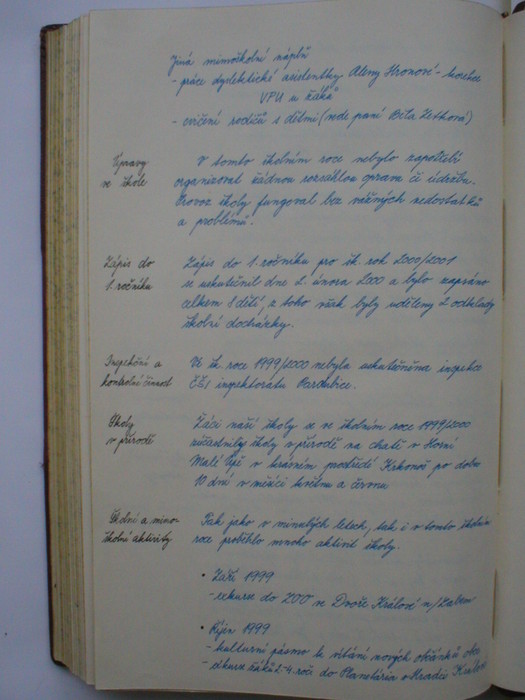 Jiná mimoškolní náplň
- práce dyslektické asistentky Aleny Hronové - korekce
VPU u žáků
- cvičení rodičů s dětmi (vede paní Bíla Zetková)
Úpravy
ve škole
V tomto školním roce nebylo zapotřebí
organizovat žádnou rozsáhlou opravu či údržbu.
Provoz školy fungoval bez vážných nedostatků
a problémů.
Zápis do
1. ročníku
Zápis do 1. ročníku pro šk. rok 2000/2001
se uskutečnil dne 2. února 2000 a bylo zapsáno
celkem dětí, z toho však byly uděleny 2 odklady
školní docházky.
Inspekční a
kontrolní činnost
Ve šk. roce 1999/2000 nebyla uskutečněna inspekce
ČŠI inspektorátu Pardubice.
Školy
v přírodě
Žáci naší školy se ve školním roce 1999/2000
zúčastnily školy v přírodě na chatě v Horní
Malé Úpě v krásném prostředí Krkonoš po dobu
10 dní v měsíci květnu a červnu
Školní a mimo-
školní aktivity
Tak jako v minulých letech, tak i v tomto školním
roce proběhlo mnoho aktivit školy.
• Září 1999
- exkurze do ZOO ve Dvoře Králové n/Labem
• Říjen 1999
- kulturní pásmo k vítání nových občánků obce
- exkurze žáků 2.-4. roč. do Planetária v Hradci Králové